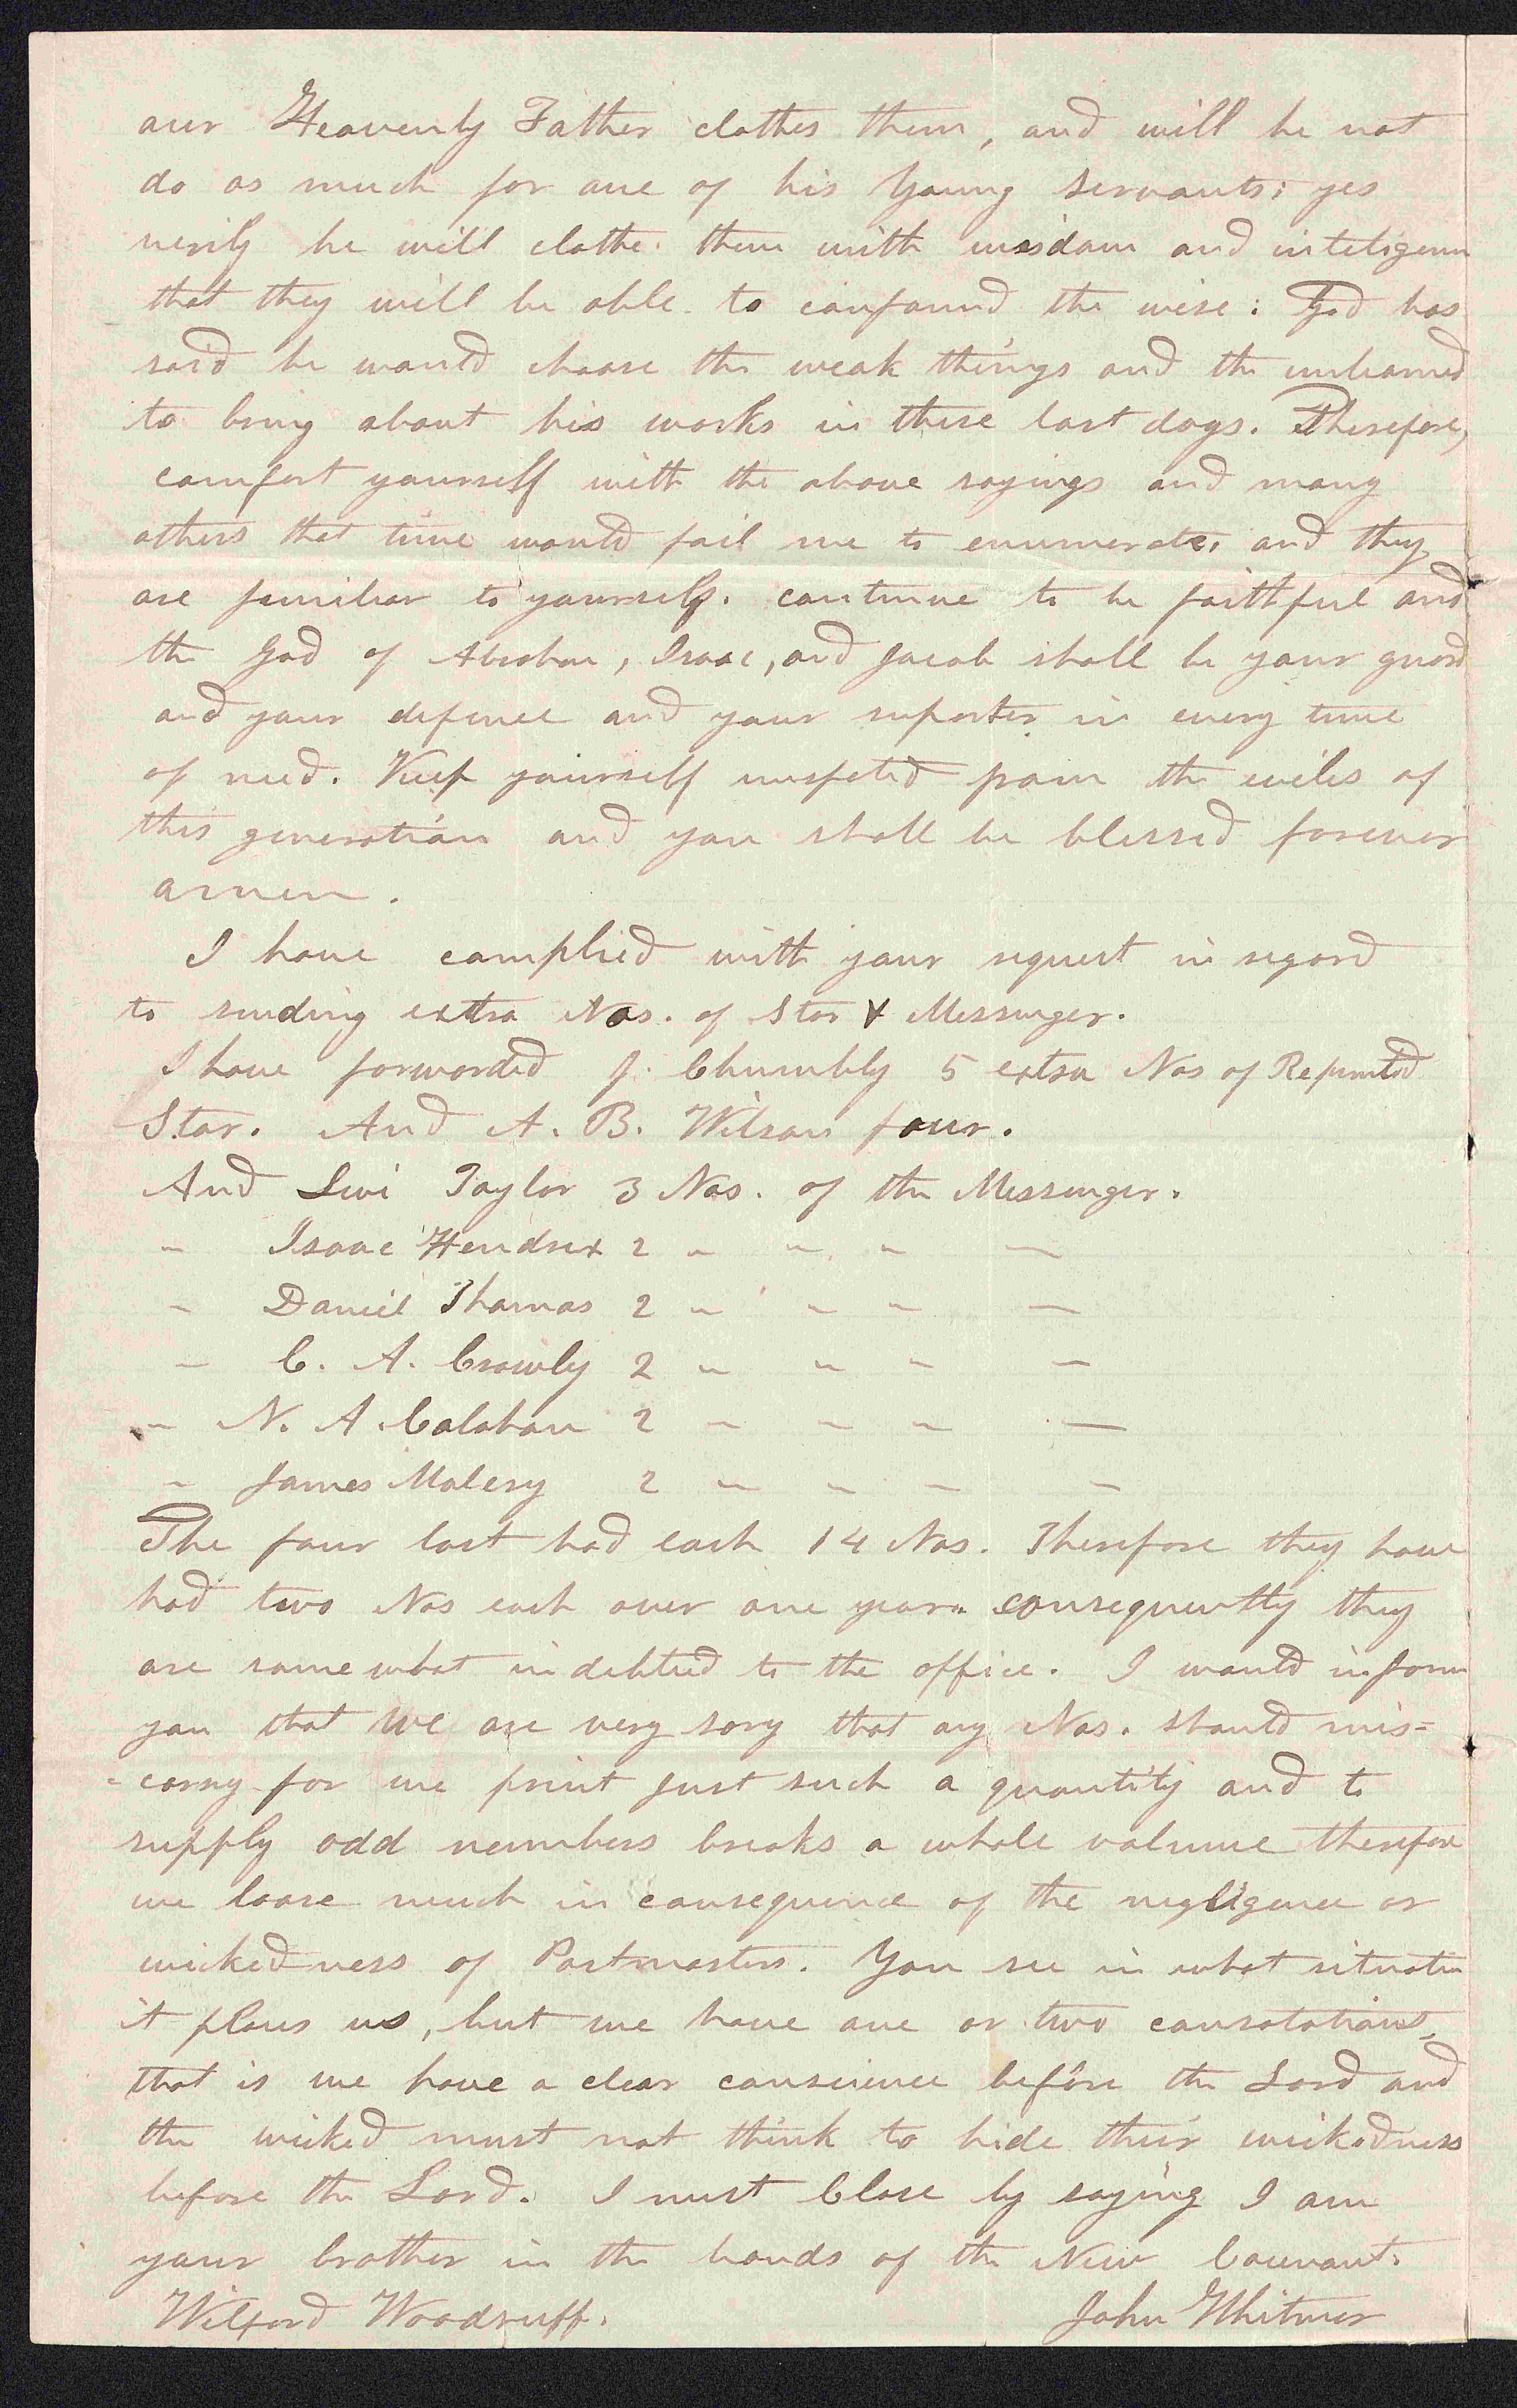 our Heavenly Father clothes them, and will he not
do as much for one of his Young servants; yes
verily he will clothe them with wisdom and inteligenc
that they will be able to confound the wise: God has
said he would choose the weak things and the unlearned
to bring about his works in these last days. Therefore,
comfort yourself with the above sayings and many
others that time would fail me to enumerate, and they
are familiar to yourself. continue to be faithful and
the God of Abraham, Isaac, and Jacob shall be your guard
and your defence and your suporter in every time
of need. Keep yourself unspoted from the evils of
this generation and you shall be blessed forever
amen.
I have complied with your request in regard
to sending extra Nos. of Star & Messenger.
I have forwarded J. Chumbly 5 extra Nos of Reprinted
Star. And A. B. Wilson four.
And Levi Taylor 3 Nos. of the Messenger.
" Isaac Hendrix 2 " " " "
" Daniel Thomas 2 " " " "
" C. A. Crowly 2 " " " "
" N. A. Calahan 2 " " " "
" James Malery 2 " " " "
The four last had each 14 Nos. Therefore they have
had two Nos each over one year. consequently they
are somewhat indebtted to the office. I would inform
you that we are very sory that any Nos. should mis=
=carry for we print just such a quantity and to
supply odd numbers breaks a whole volume therefore
we loose much in consequence of the negligence or
wickedness of Postmasters. You see in what situation
it places us, but we have one or two consolations,
that is we have a clear conscience before the Lord and
the wicked must not think to hide their wickedness
before the Lord. I must Close by saying I am
your brother in the bonds of the New Covenant.
Wilford Woodruff. John Whitmer